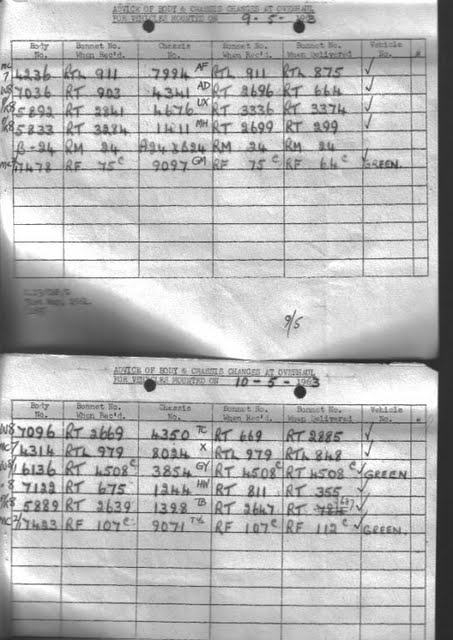 ADVICE OF BODY & CHASSIS CHANGES AT OVERHAUL
FOR VEHICLES MOUNTED ON 9-5-1963
Body No. Bonnet No. When Rec'd. Chassis No. Bonnet No. When Rec'd. Bonnet No. When Delivered Vehicle No. *
MC 7 4236 RTL 911 7994 AF RTL 911 RTL 875 ✓
W8 7036 RT 903 4341 AD RT 2696 RT 664 ✓
PK8 5892 RT 2841 4676 UX RT 3336 RT 3374 ✓
PK8 5833 RT 3284 1411 MH RT 2699 RT 299 ✓
B-24 RM 24 A24 B24 RM 24 RM 24 ✓
MC 7478 RF 75c 9097 GM RF 75c RF 64c ✓ GREEN.
9/5
ADVICE OF BODY & CHASSIS CHANGES AT OVERHAUL
FOR VEHICLES MOUNTED ON 10-5-1963
Body No. Bonnet No. When Rec'd. Chassis No. Bonnet No. When Rec'd. Bonnet No. When Delivered Vehicle No. *
W8 7096 RT 2669 4350 TC RT 669 RT 2885 ✓
MC 7 4314 RTL 979 8024 X RTL 979 RTL 848 ✓
W8 6136 RT 4508c 3854 GY RT 4508c RT 4508c ✓ GREEN
8 7122 RT 675 1244 HW RT 811 RT 355 ✓
PK8 5889 RT 2639 1398 TB RT 2647 RT ✓
MC 7423 RF 107c 9071 RF 107c RF 112c ✓ GREEN.